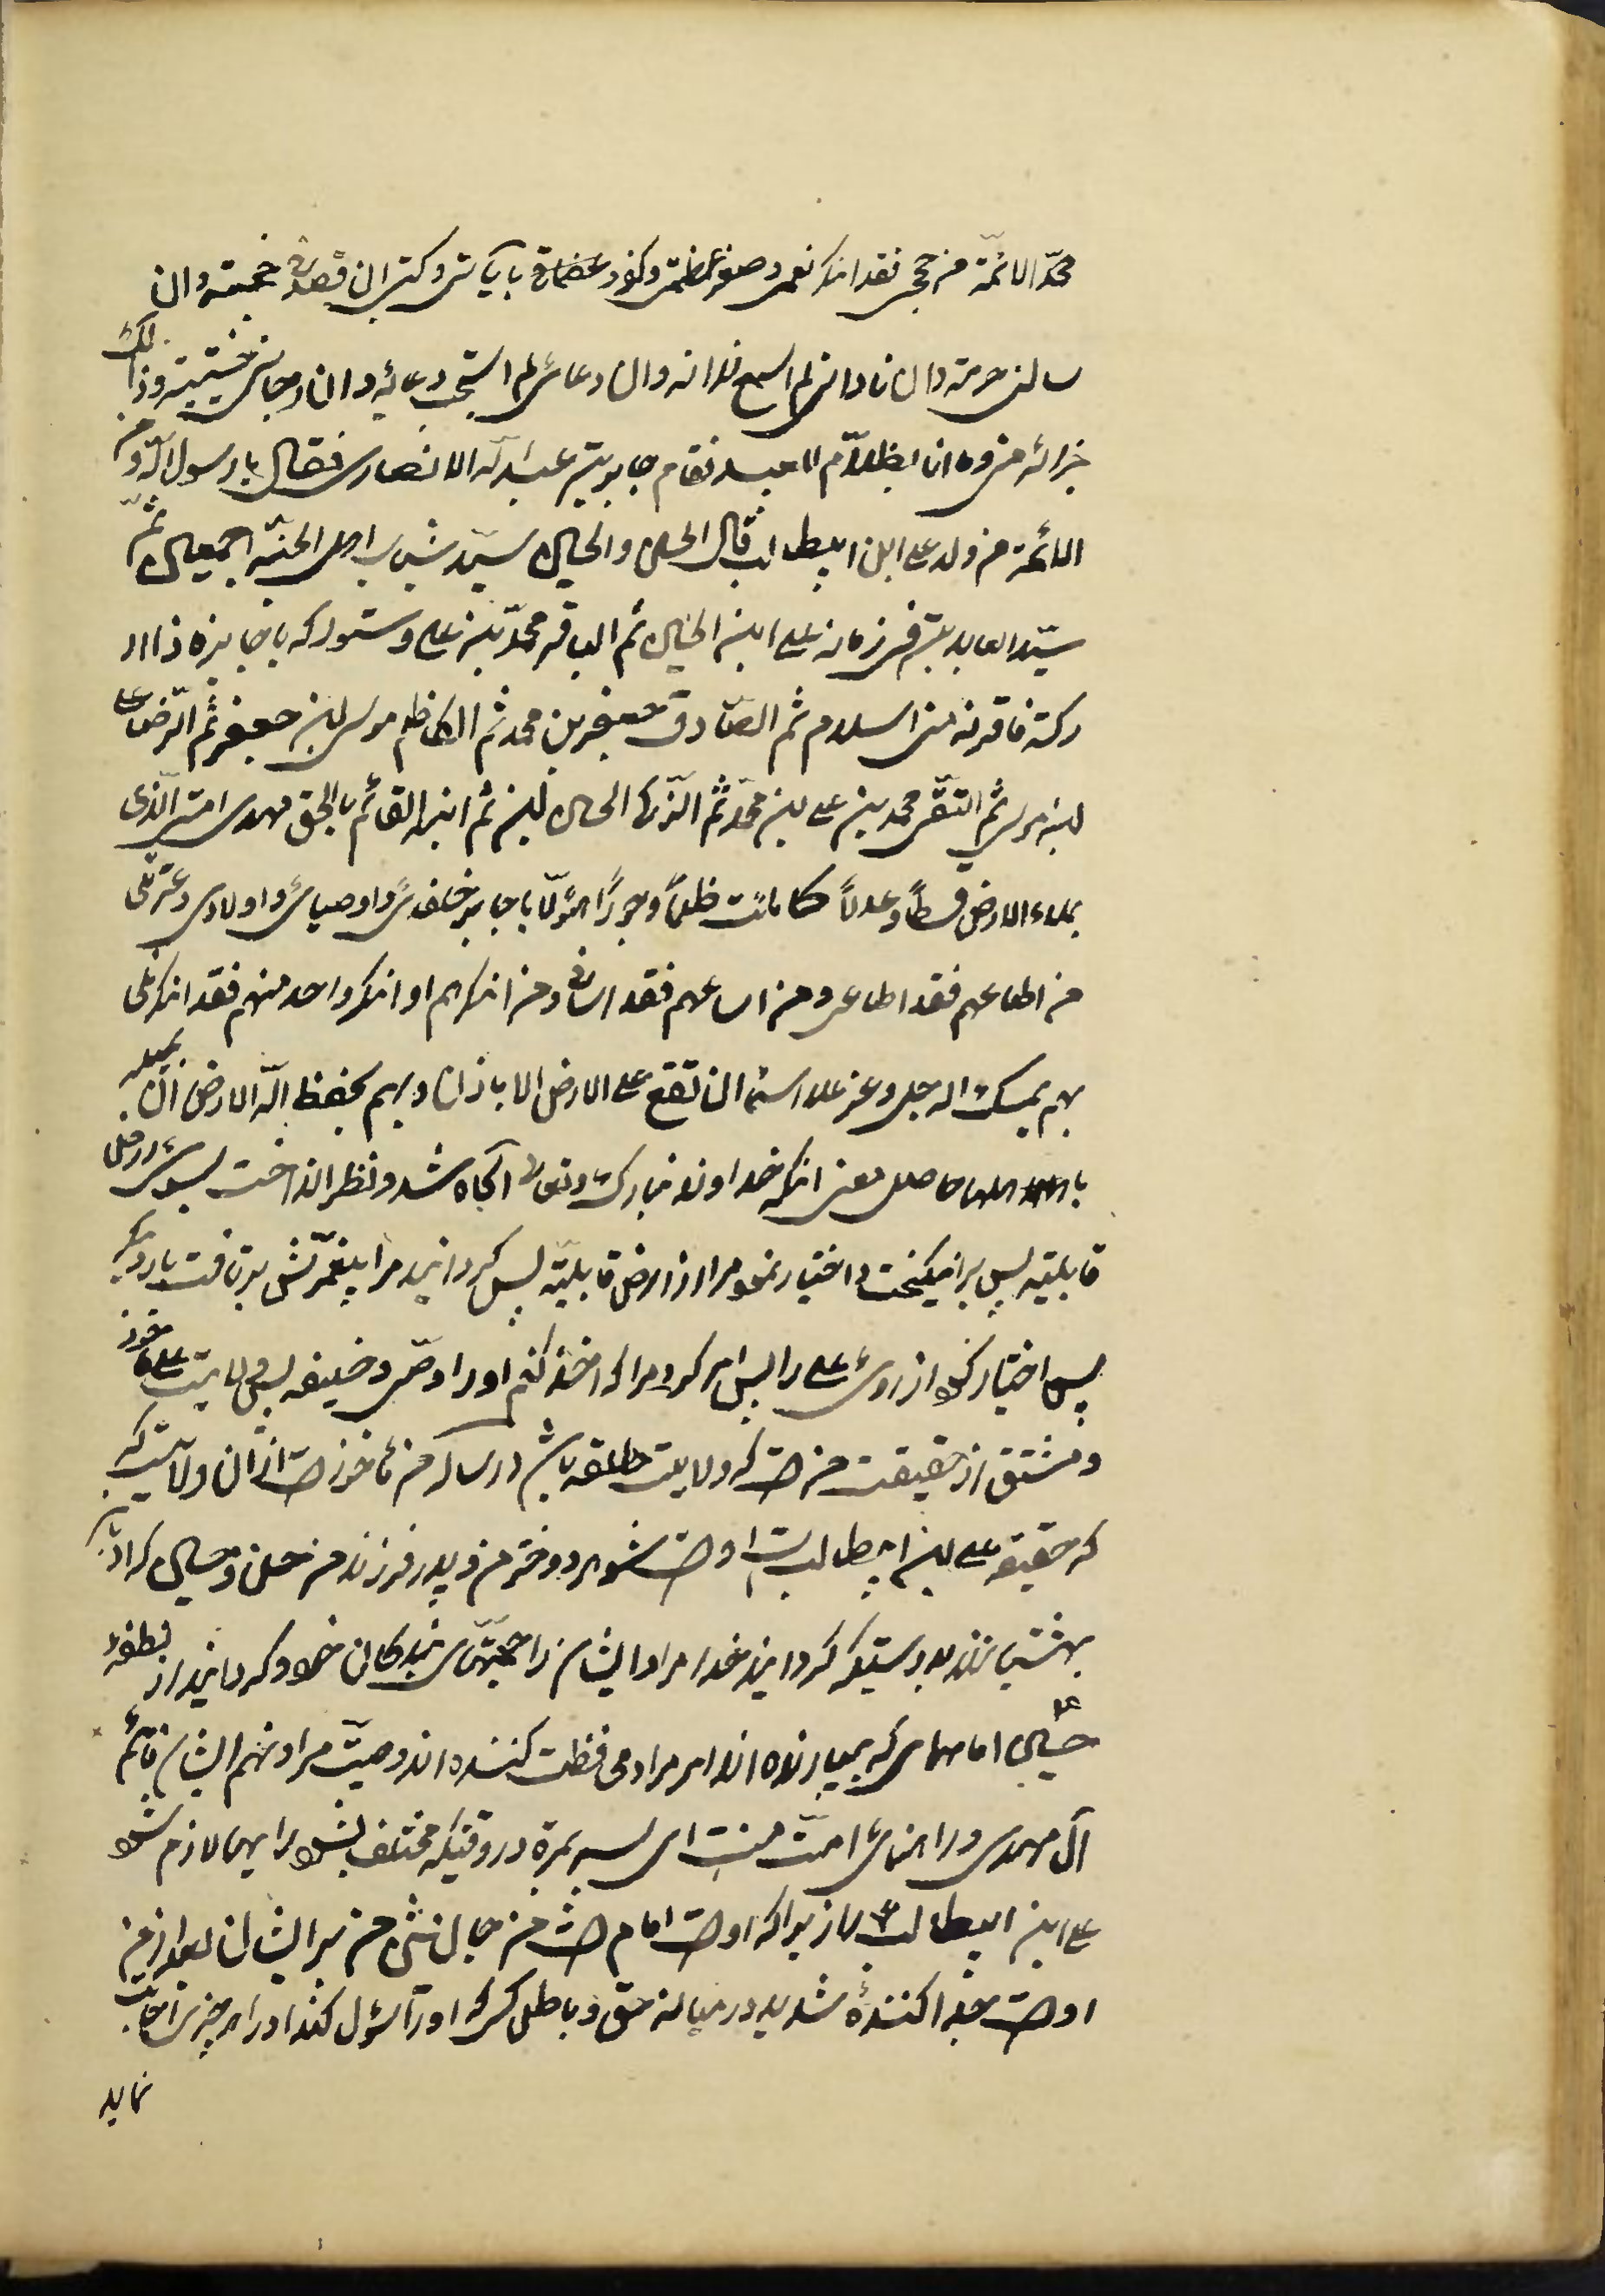 محمّد الائمّة من حججی فقد انکر نعمتی و صغر عظمتی و کفر بآیاتی و کتبی ان قصدنی حجبته و ان
سالنی حرمته و ان نادانی لم اسمع ندائه و ان دعانی لم استجب دعائه و ان رجانی خیبته و ذلک
جزائه منی و ما انا بظلّام للعبید فقام جابر بن عبد الله الانصاری فقال یا رسول الله و من
الائمة من ولد علی ابن ابیطالب قال الحسن و الحسین سیّد شباب اهل الجنّة اجمعین ثمّ
سیّد العابدین فی زمانه علی ابن الحسین ثم الباقر محمّد بن علی و ستدرکه یا جابر فاذا اد
رکته فاقرئه منی السلام ثم الصّادق جعفر بن محمد ثم الکاظم موسی بن جعفر ثم الرّضا علی
بن موسی ثم التقّی محمد بن علی بن محمّد ثم الزّکی الحسن بن ثم ابنه القائم بالحق مهدی امتی الّذی
یملاء الارض قسطاً و عدلاً کما ملئت ظلماً و جوراً هؤلآ یا جابر خلفائی و اوصیائی و اولادی و عترتی
من اطاعهم فقد اطاعنی و من عصاهم فقد عصانی و من انکرهم او انکر واحد منهم فقد انکرنی
بهم یمسک الله جل و عز علا السماء ان تقع علی الارض الا باذنه و بهم یحفظ الله الارض ان تمید
باهلها حاصل معنی انکه خداوند تبارک و تعالی آکاه شد و نظر انداخت بسوی ارض
قابلیّه پس برانیکیخت و اختیار نمود مرا از ارض قابلیّه پس کردانید مرا پیغمبر پس برتافت بار دیکر
پس اختیار کرد از روی علی را پس امر کرد مرا که اخذ کنم او را وصّی و خلیفه پس ولایت علی ماخوذ
و مشتق از حقیقت من است که ولایت مطلقه باشد و رسالت من ماخوذ است از ان ولایت که
که حقیقه علی بن ابیطالب است او است شوهر دختر من و پدر فرزند من حسن و حسین که از
بهشتیانند بدرستیکه کردانید خدا مرا و ایشان را حجتهای بندکان خود و کردانید از نطفهٔ
حسین ع امامهائی که بپا دارنده اند امر مرا و محافظت کننده اند وصیّت مرا و نهم ایشان قائم
آل مهدی و راهنمای امّت منست ای پسر سمرة در وقتیکه مختلف بشود رایها لازم شو
علی ابن ابیطالب ع را زیرا که او است امام امت من و جانشین من بر ایشان بعد از من
او است جدا کنندهٔ شدید در میانه حق و باطل کسی که او را سؤل کند او را هر چیزی اجابت
نماید